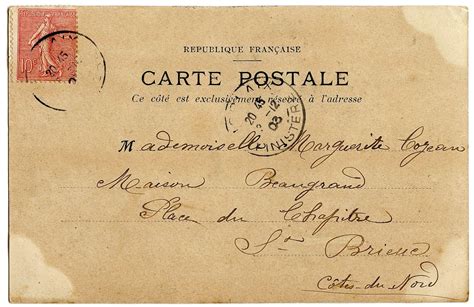 10c
20 45
REPUBLIQUE FRANÇAISE
CARTE POSTALE
Ce côté est exclusivement réservé à l'adresse
20 45
-12
03
FINISTER
Mademoiselle Marguerite Cozean
Maison Beaugrand
Place du Chapitre
St Brieuc
Côtes-du-Nord